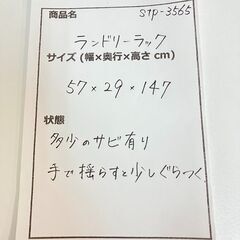 商品名 STP-3565
ランドリーラック
サイズ (幅×奥行×高さ cm)
57×29×147
状態
多少のサビ有り
手で揺らすと少しぐらつく